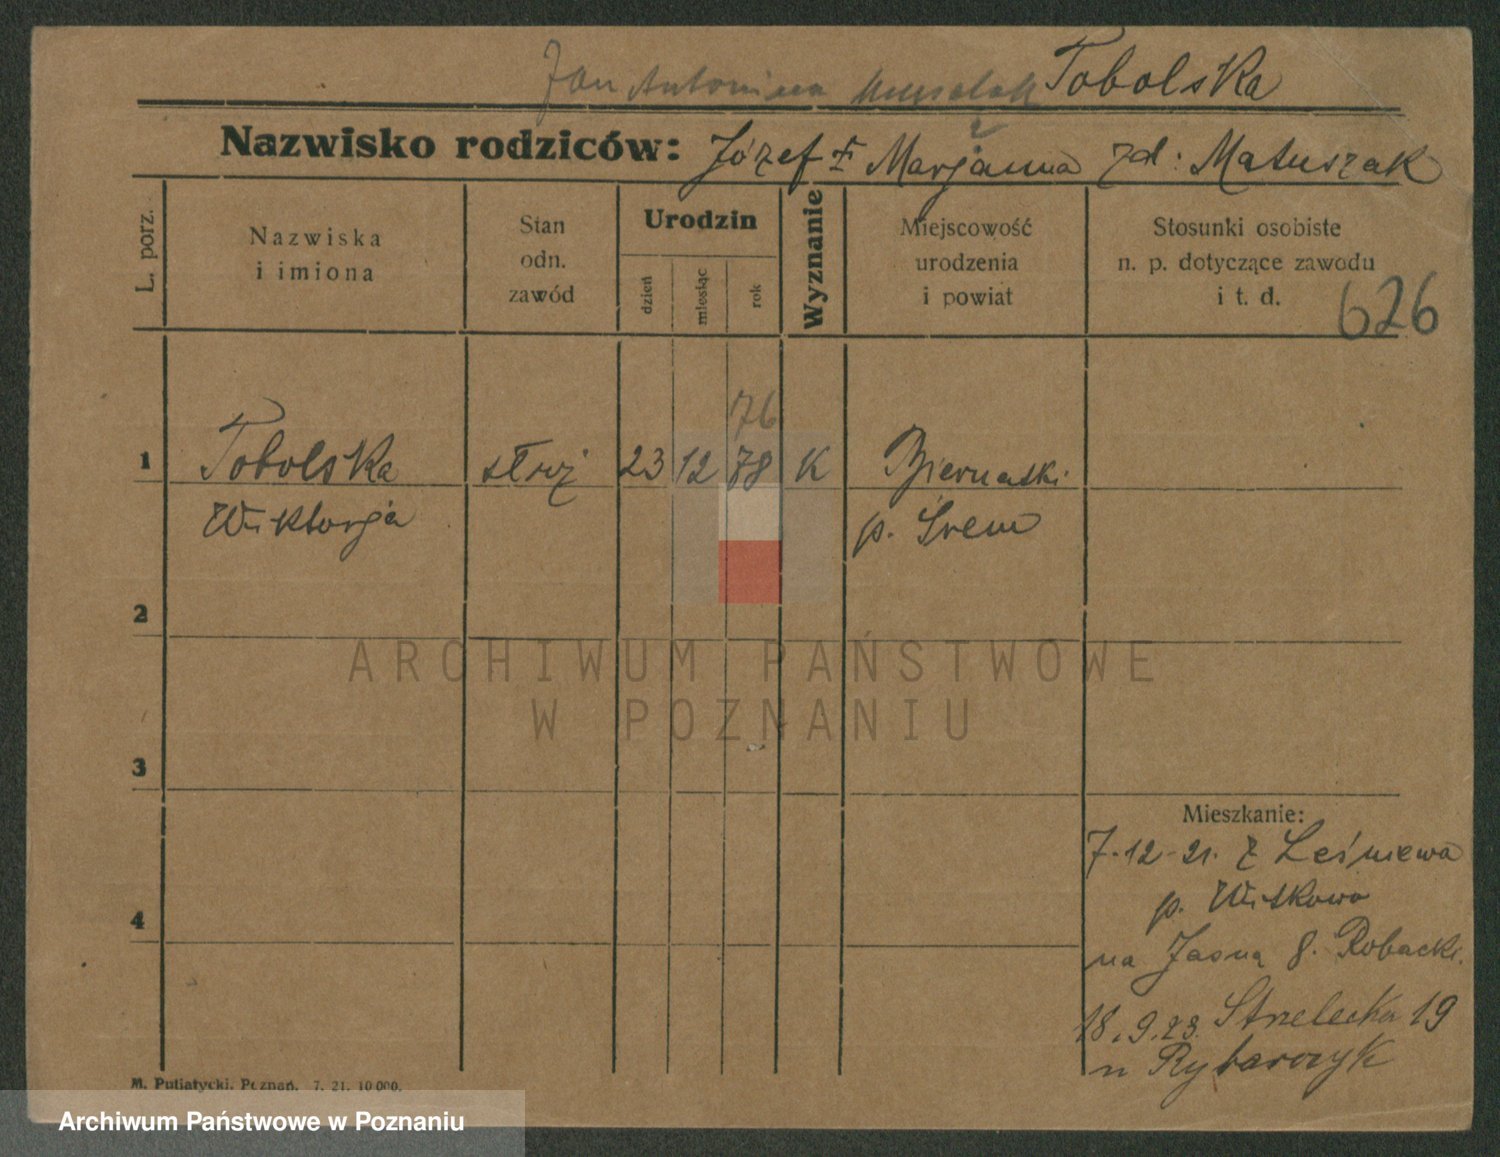 Jan Antonina Tobolska
Nazwisko rodziców: Józef + Marjanna zd: Matuszak
L. porz.
Nazwiska
i imiona
Stan
odn.
zawód
Urodzin
dzień
miesiąc
rok
Wyznanie
Miejscowość
urodzenia
i powiat
Stosunki osobiste
n. p. dotyczące zawodu
i t. d.
626
76
1 Tobolska służ 23 12 78 K Biernatki
Wiktorja p. Śrem
2
ARCHIWUM PAŃSTWOWE
W POZNANIU
3
Mieszkanie:
7.12.21. z Leśniewa
p. Witkowo
4
na Jasną 8. Robacki.
18.9.23. Strzelecka 19
n Rybarczyk
M. Putiatycki. Poznań. 7. 21. 10 000.
Archiwum Państwowe w Poznaniu